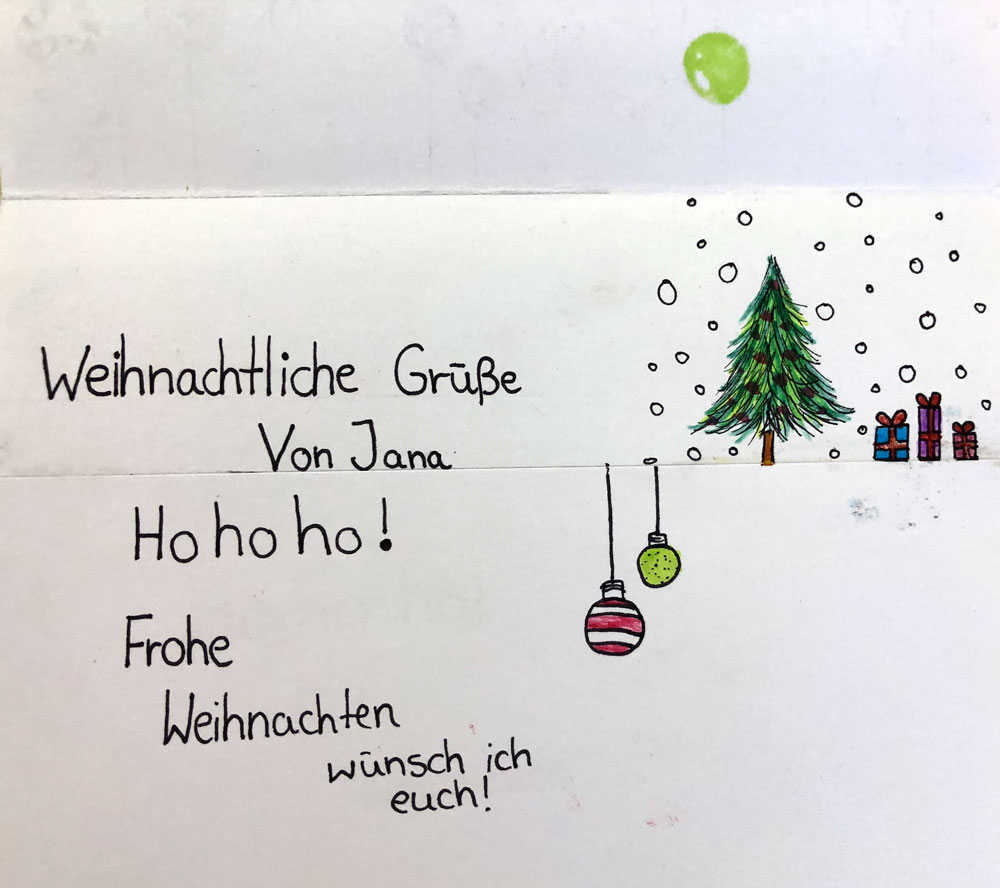 Weihnachtliche Grüße
Von Jana
Ho ho ho!
Frohe
Weihnachten
wünsch ich
euch!